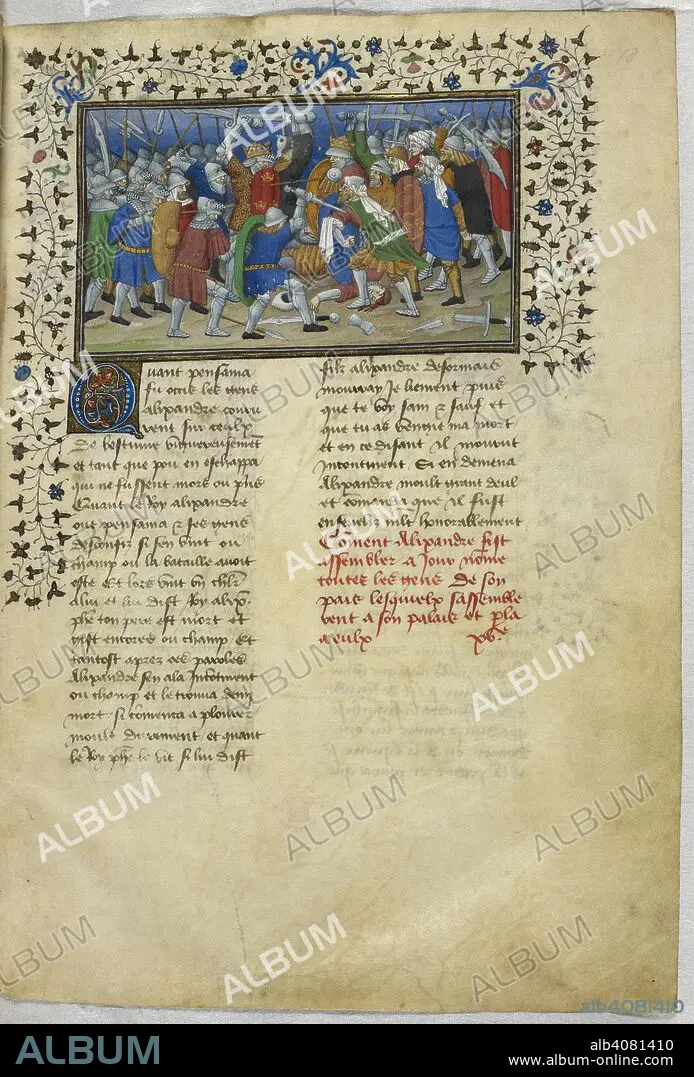 18
Quant pensama
fu occis les gens
alixandre couru
rent sur ceulx
de bestume vigoureusement
et tant que pou en eschappa
qui ne fussent mors ou pris
Quant le Roy alixandre
out pensama & ses gens
desconfiz si sen vint ou
champ ou la bataille avoit
este Et lors vint vn chlr
a lui et lui dist Roy alix
phe ton pere est mort et
gist encores ou champ Et
tantost aprez ces paroles
Alixandre sen ala Incontinent
ou champ et le trouua demi
mort si commenca a plourer
moult durement et quant
le Roy phe le vit si lui dist
filz alixandre desormais
mourray Je liement puis
que te voy sain & sauf et
que tu as vengie ma mort
et en ce disant il mourut
incontinent. Si en demena
Alixandre moult grant deul
et comanda que il fust
enseveliz mlt honorablement
Coment Alixandre fist
assembler a Jour nome
toutes les gens de son
pais lesquelx sassemble
rent a son palais et pla
a eulx xve
ALBUM
alb4081410
ALBUM
alb4081410
www.album-online.com